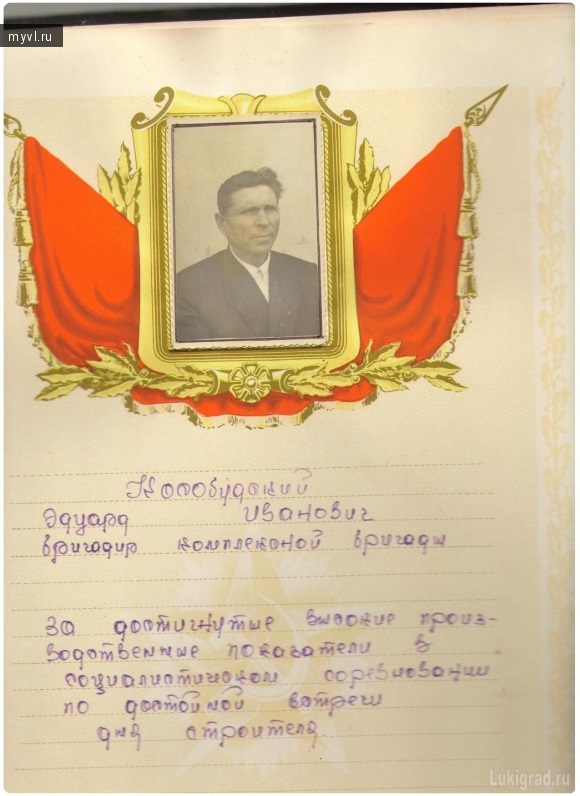 myvl.ru
Эдуард Иванович
бригадир комплексной бригады
за достигнутые высокие произ-
водственные показатели в
социалистическом соревновании
по достойной встречи
дня строителя.
Lukigrad.ru